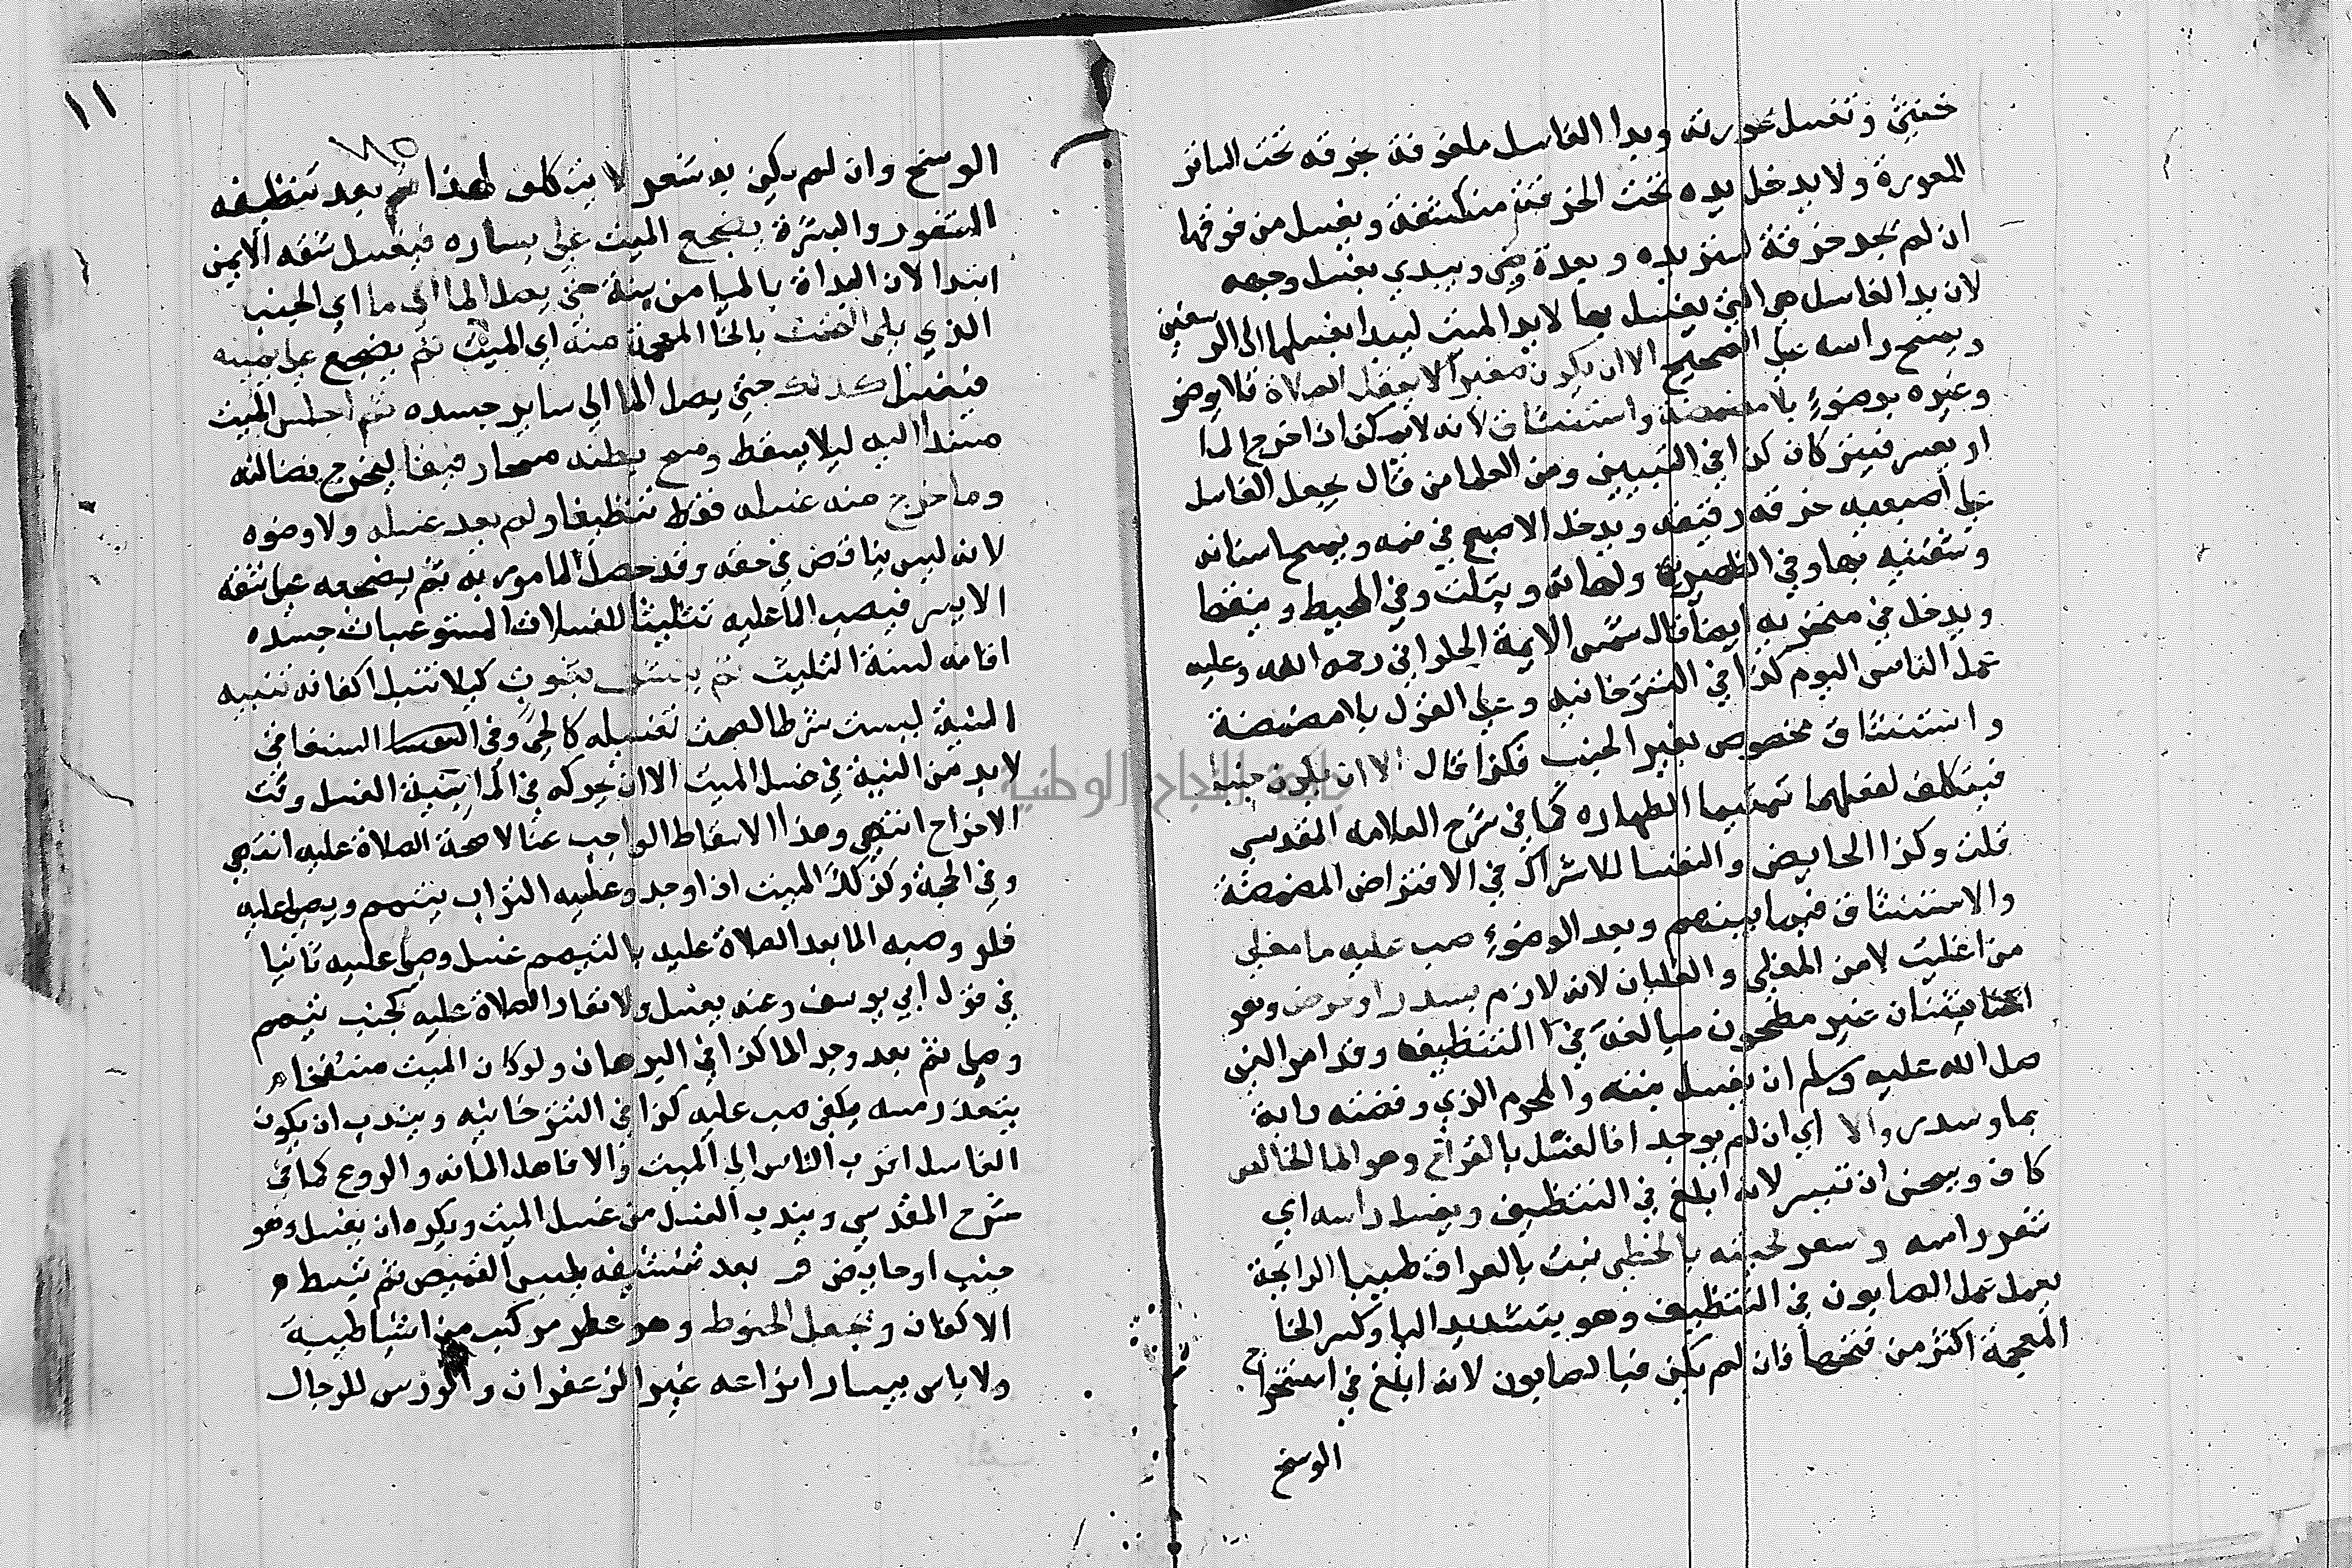 خنثى وتغسل عورته ويدا الغاسل ملفوفة بخرقه تحت الساتر
للعورة ولا يدخل يده تحت الخرقة منكشفة ويغسل من فوقها
ان لم يجد خرقة لستر يده وبعده وضي ويبدي بغسل وجهه
لان يدا الغاسل هي التي يغسل بها لا يد الميت ليبدا بغسلها الى الرسغين
ويمسح راسه على الصحيح الا ان يكون صغيرا لا يعقل الصلاة فلا يوضو
وغيره يوضؤ بلا مضمضة واستنشاق لانه لا يمكن اذا اخرج الما
او يعسر فيتركان كذا في التبيين ومن العلما من قال يجعل الغاسل
على اصبعيه خرقه رقيقه ويدخل الاصبع في فمه ويمسح اسنانه
وشفتيه بها وفي الظهيرية ولهاته ولثته وفي المحيط وينقها
ويدخل في منخريه ايضا قال شمس الايمة الحلواني رحمه الله وعليه
عمل الناس اليوم كذا في التترخانيه وعلى القول بلا مضمضة
واستنشاق مخصوص بغير الجنب فكذا قال الا ان يكون جنبا
فيتكلف لفعلهما تتميما للطهاره كما في شرح العلامه المقدسي
قلت وكذا الحايض والنفسا للاشتراك في الافتراض المضمضة
والاستنشاق فيما بينهم وبعد الوضوء صب عليه ما مغلي
من اغليت لا من الغلي والغليان لانه لازم بسدر او حرض وهو
اشنان غير مطحون مبالغة في التنظيف وقد امر النبي
صلى الله عليه وسلم ان يغسل بنته والمحرم الذي وقصته دابة
بما وسدر والا اي ان لم يوجد فالغسل بالقراح وهو الما الخالص
كاف ويسخن ان تيسر لانه ابلغ في التنظيف ويغسل راسه اي
شعر راسه وشعر لحيته بالخطمي نبت بالعراق طيب الرايحة
يعمل عمل الصابون في التنظيف وهو بتشديد اليا وكسر الخا
المعجمة اكثر من فتحها فان لم يكن فبالصابون لانه ابلغ في استخراج
الوسخ
١١
الوسخ وان لم يكن به شعر لا يتكلف لهذا ثم بعد تنظيفه
الشعور والبشرة يضجع الميت على يساره فيغسل شقه الايمن
ابتدا لان البداة بالميامن سنة حتى يصل الما الى ما اي الجنب
الذي يلي التخت بالخا المعجمة منه اي الميت ثم يضجع على يمينه
فيغسل كذلك حتى يصل الما الى ساير جسده ثم اجلس الميت
مسندا اليه ليلا يسقط ومسح بطنه مسحا رفيقا ليخرج فضالته
وما خرج منه غسله فقط تنظيفا ولم يعد غسله ولا وضوه
لانه ليس بناقض في حقه وقد حصل المامور به ثم يضجعه على شقه
الايسر فيصب الما عليه تثليثا للغسلات المستوعبات جسده
اقامه لسنة التثليث ثم ينشف بثوب كيلا تبتل اكفانه تنبيه
النية ليست شرطا لصحة تغسيله كالحي وفي
لا بد من النية في غسل الميت الا ان يحركه في الما بنية الغسل وقت
الاخراج انتهى وهذا لاسقاط الواجب عنا لا صحة الصلاة عليه انتهى
وفي الحجة وكذلك الميت اذا وجد وعليه التراب يتيمم ويصلى عليه
فلو وجد الما بعد الصلاة عليه بالتيمم غسل وصلي عليه ثانيا
في قول ابي يوسف وعنه يغسل ولا تعاد الصلاة عليه كجنب تيمم
وصلى ثم بعد وجد الما كذا في البرهان ولو كان الميت منتفخا
يتعذر مسه يكفى صب عليه كذا في التترخانيه ويندب ان يكون
الغاسل اقرب الناس الى الميت والا فاهل الامانه والورع كما في
شرح المقدسي ويندب الغسل من غسل الميت ويكره ان يغسل وهو
جنب او حايض بعد تنشيفه يلبس القميص ثم تبسط
الاكفان ويجعل الحنوط وهو عطر مركب من اشيا طيبة
ولا باس بساير انواعه غير الزعفران والورس للرجال
جامعة النجاح الوطنية